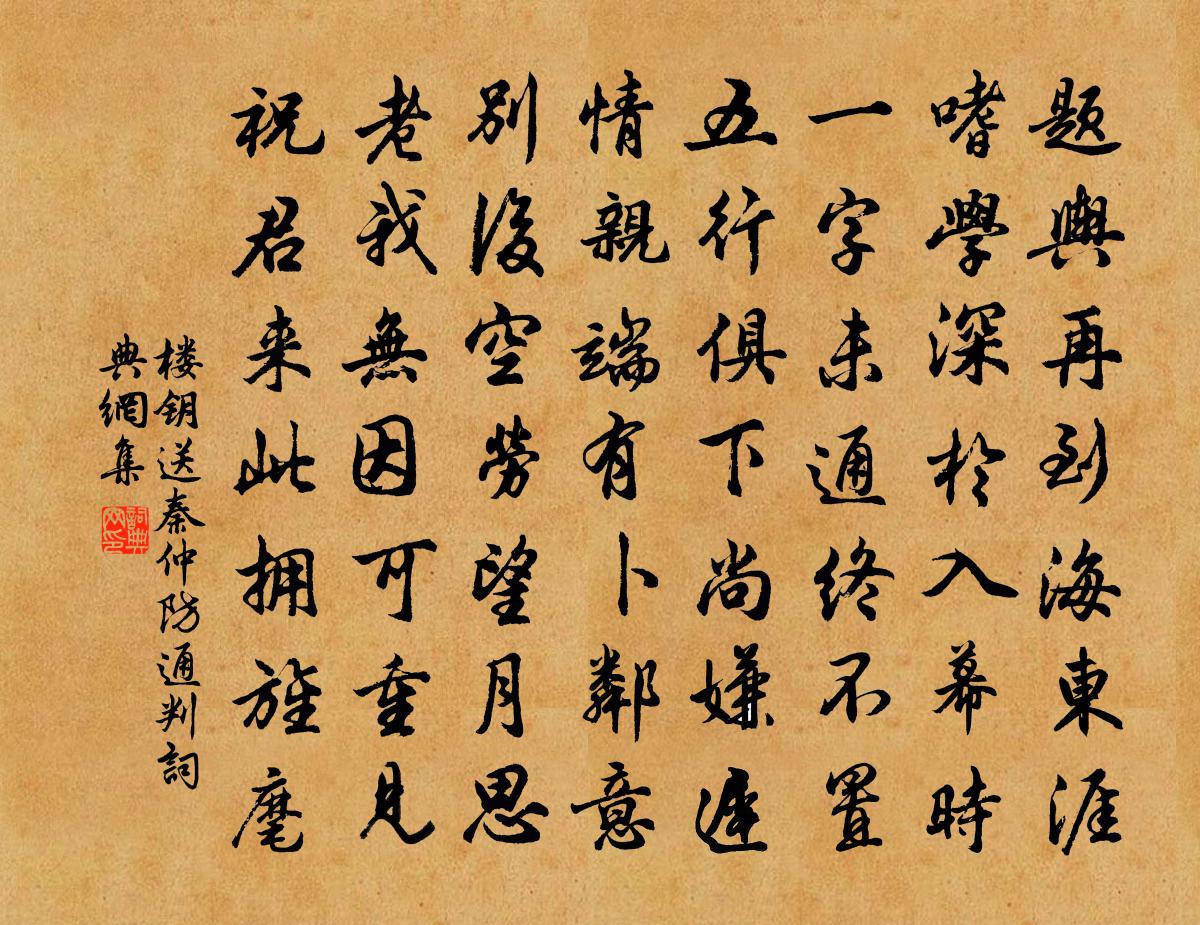 题輿再到海東涯
嗜學深於入幕時
一字未通終不置
五行俱下尚嫌遲
情親端有卜鄰意
別後空勞望月思
老我無因可重見
祝君来此拥旌麾
楼钥送秦仲防通判詞
典網集
詞典
网印